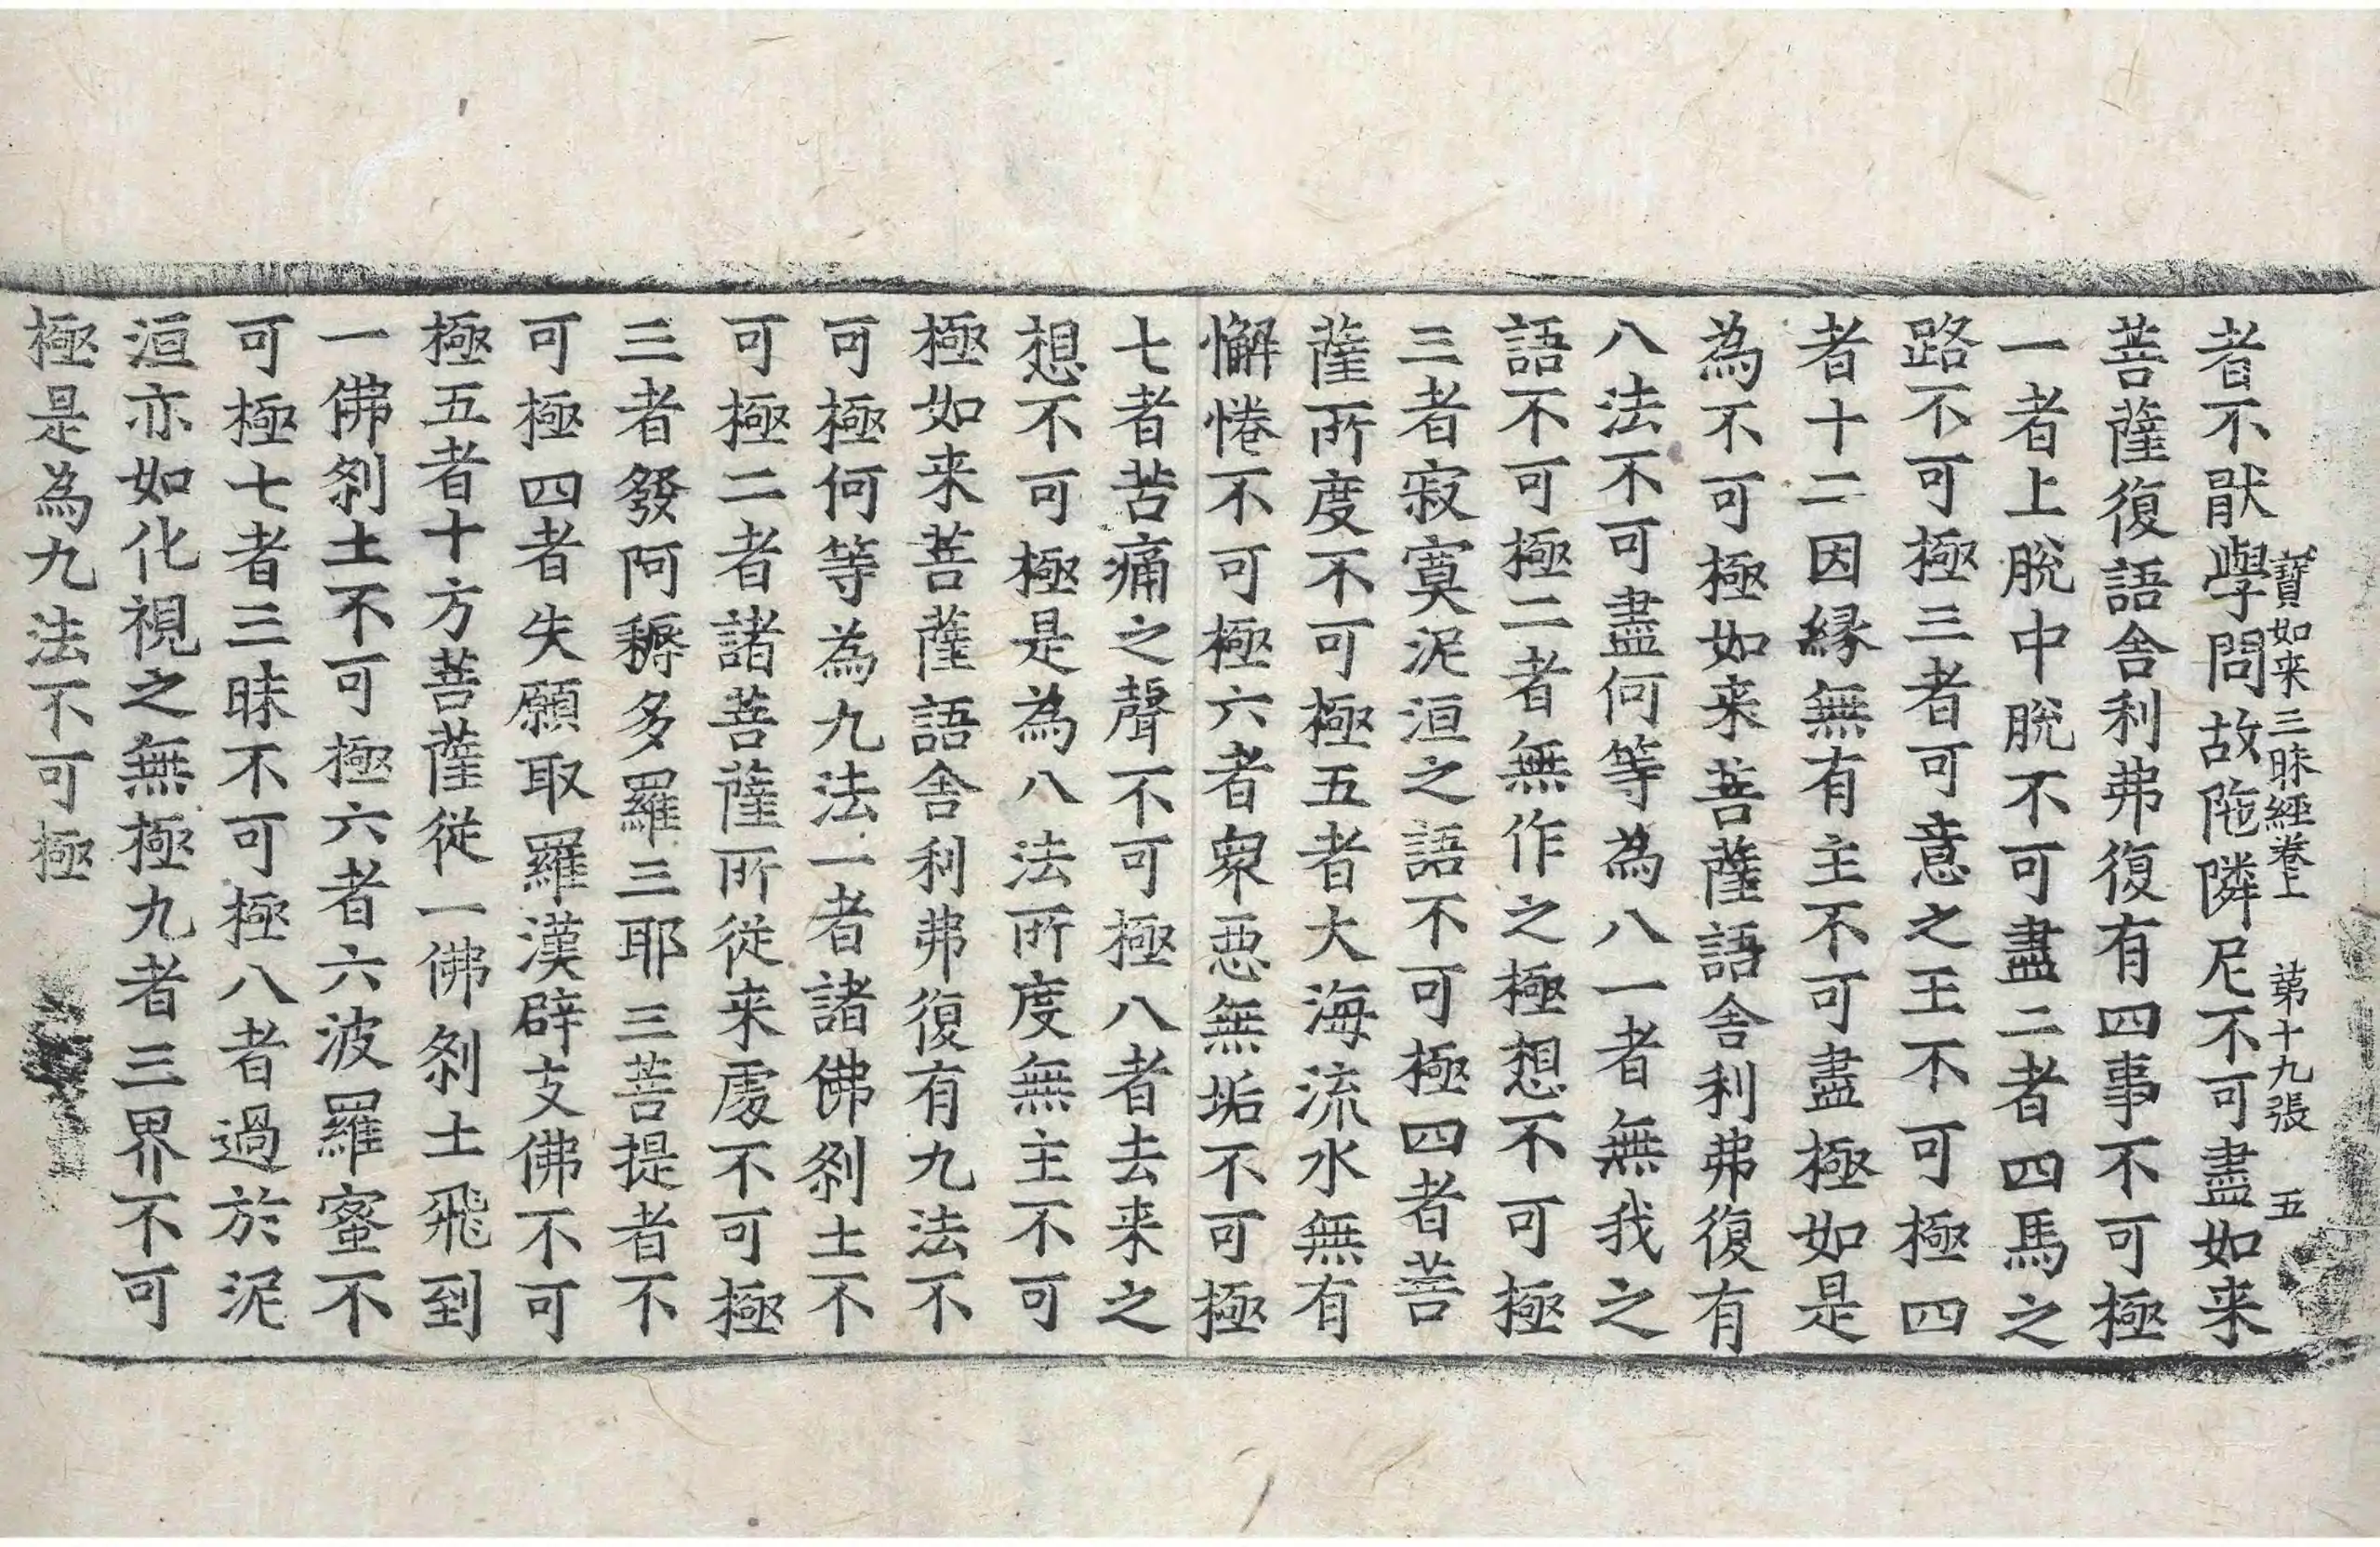 寶如来三昧經卷上　第十九張　五
者不猒學問故陁隣尼不可盡如来
菩薩復語舎利弗復有四事不可極
一者上脫中脫不可盡二者四馬之
路不可極三者可意之王不可極四
者十二因縁無有主不可盡極如是
為不可極如来菩薩語舎利弗復有
八法不可盡何等為八一者無我之
語不可極二者無作之極想不可極
三者寂寞泥洹之語不可極四者菩
薩所度不可極五者大海流水無有
懈惓不可極六者衆惡無垢不可極
七者苦痛之聲不可極八者去来之
想不可極是為八法所度無主不可
極如来菩薩語舎利弗復有九法不
可極何等為九法一者諸佛刹土不
可極二者諸菩薩所從来處不可極
三者發阿耨多羅三耶三菩提者不
可極四者失願取羅漢辟支佛不可
極五者十方菩薩從一佛刹土飛到
一佛刹土不可極六者六波羅蜜不
可極七者三昧不可極八者過於泥
洹亦如化視之無極九者三界不可
極是為九法不可極